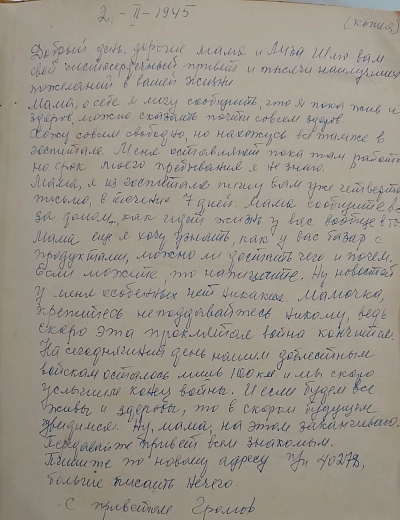 2 - II - 1945
(копия)
Добрый день, дорогие мама и Лиза Шлю вам
свой чистосердечный привет и тысячи наилучших
пожеланий в вашей жизни
Мама, о себе я могу сообщить, что я пока жив и
здоров, можно сказать почти совсем здоров
Хожу совсем свободно, но нахожусь все также в
госпитале. Меня оставляют пока там работать
но срок моего пребывания я не знаю.
Мама, я из госпиталя пишу вам уже четвертое
письмо, в течение 7 дней. Мама сообщите все
за домом, как идет жизнь у вас вообще
Мама еще я хочу узнать, как у вас базар с
продуктами, можно ли достать чего и почем,
Если можете, то напишите. Ну новостей
у меня особенных нет никаких Мамочка,
крепитесь не поддавайтесь никому, ведь
скоро эта проклятая война кончится.
На сегодняшний день нашим доблестным
войскам осталось лишь 100 км и мы скоро
услышим конец войны. И если будем все
живы и здоровы, то в скором будущем
увидимся. Ну, мама, на этом заканчиваю.
Передавайте привет всем знакомым.
Пишите по новому адресу п/п 40278,
больше писать нечего.
С приветом Громов